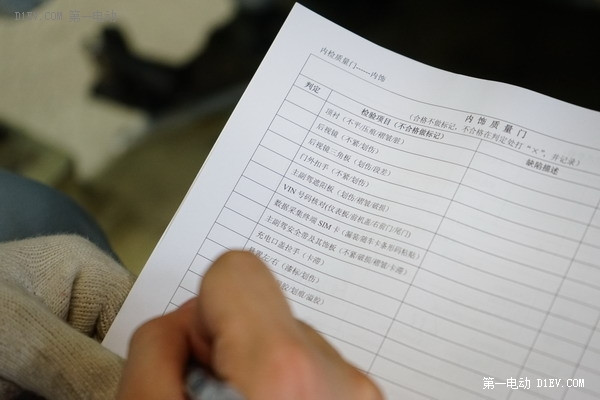 D1EV.COM 第一电动
内检质量门——内饰
内饰质量门
（合格不做标记，不合格在判定处打“×”，并记录）
判定 检验项目（不合格做标记） 缺陷描述
顶衬（不平/压痕/褶皱/脏）
后视镜（不紧/划伤）
后视镜三角板（划伤/段差）
门外扣手（不紧/划伤）
主副驾遮阳板（划伤/褶皱破损）
VIN 号码核对(仪表板/前机盖/右前门/尾门)
数据采集终端 SIM 卡（漏装/随车卡条形码粘贴）
主副驾安全带及其饰板（不紧/破损/褶皱/卡滞）
充电口盖拉手（卡滞）
左/右（漆标/划伤）
/划痕/溢胶）
第一电动 D1EV.COM